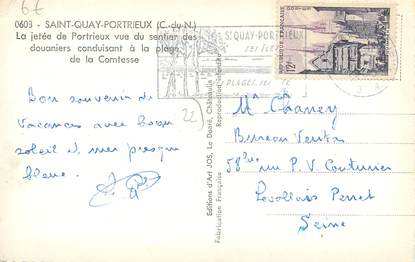 6€
0603 - SAINT-QUAY-PORTRIEUX (C.-du-N.)
La jetée de Portrieux vue du sentier des
douaniers conduisant à la plage
de la Comtesse
ST QUAY-PORTRIEUX
PLAGES
RÉPUBLIQUE FRANÇAISE
12F
22
Bon souvenir de
vacances avec beau
soleil et mer presque
bleue.
Editions d'Art JOS, Le Doaré, Châteaulin
Reproduction interdite
Fabrication Française
Mr Chaney
Bureau Veritas
58 rue P. V. Couturier
Levallois Perret
Seine